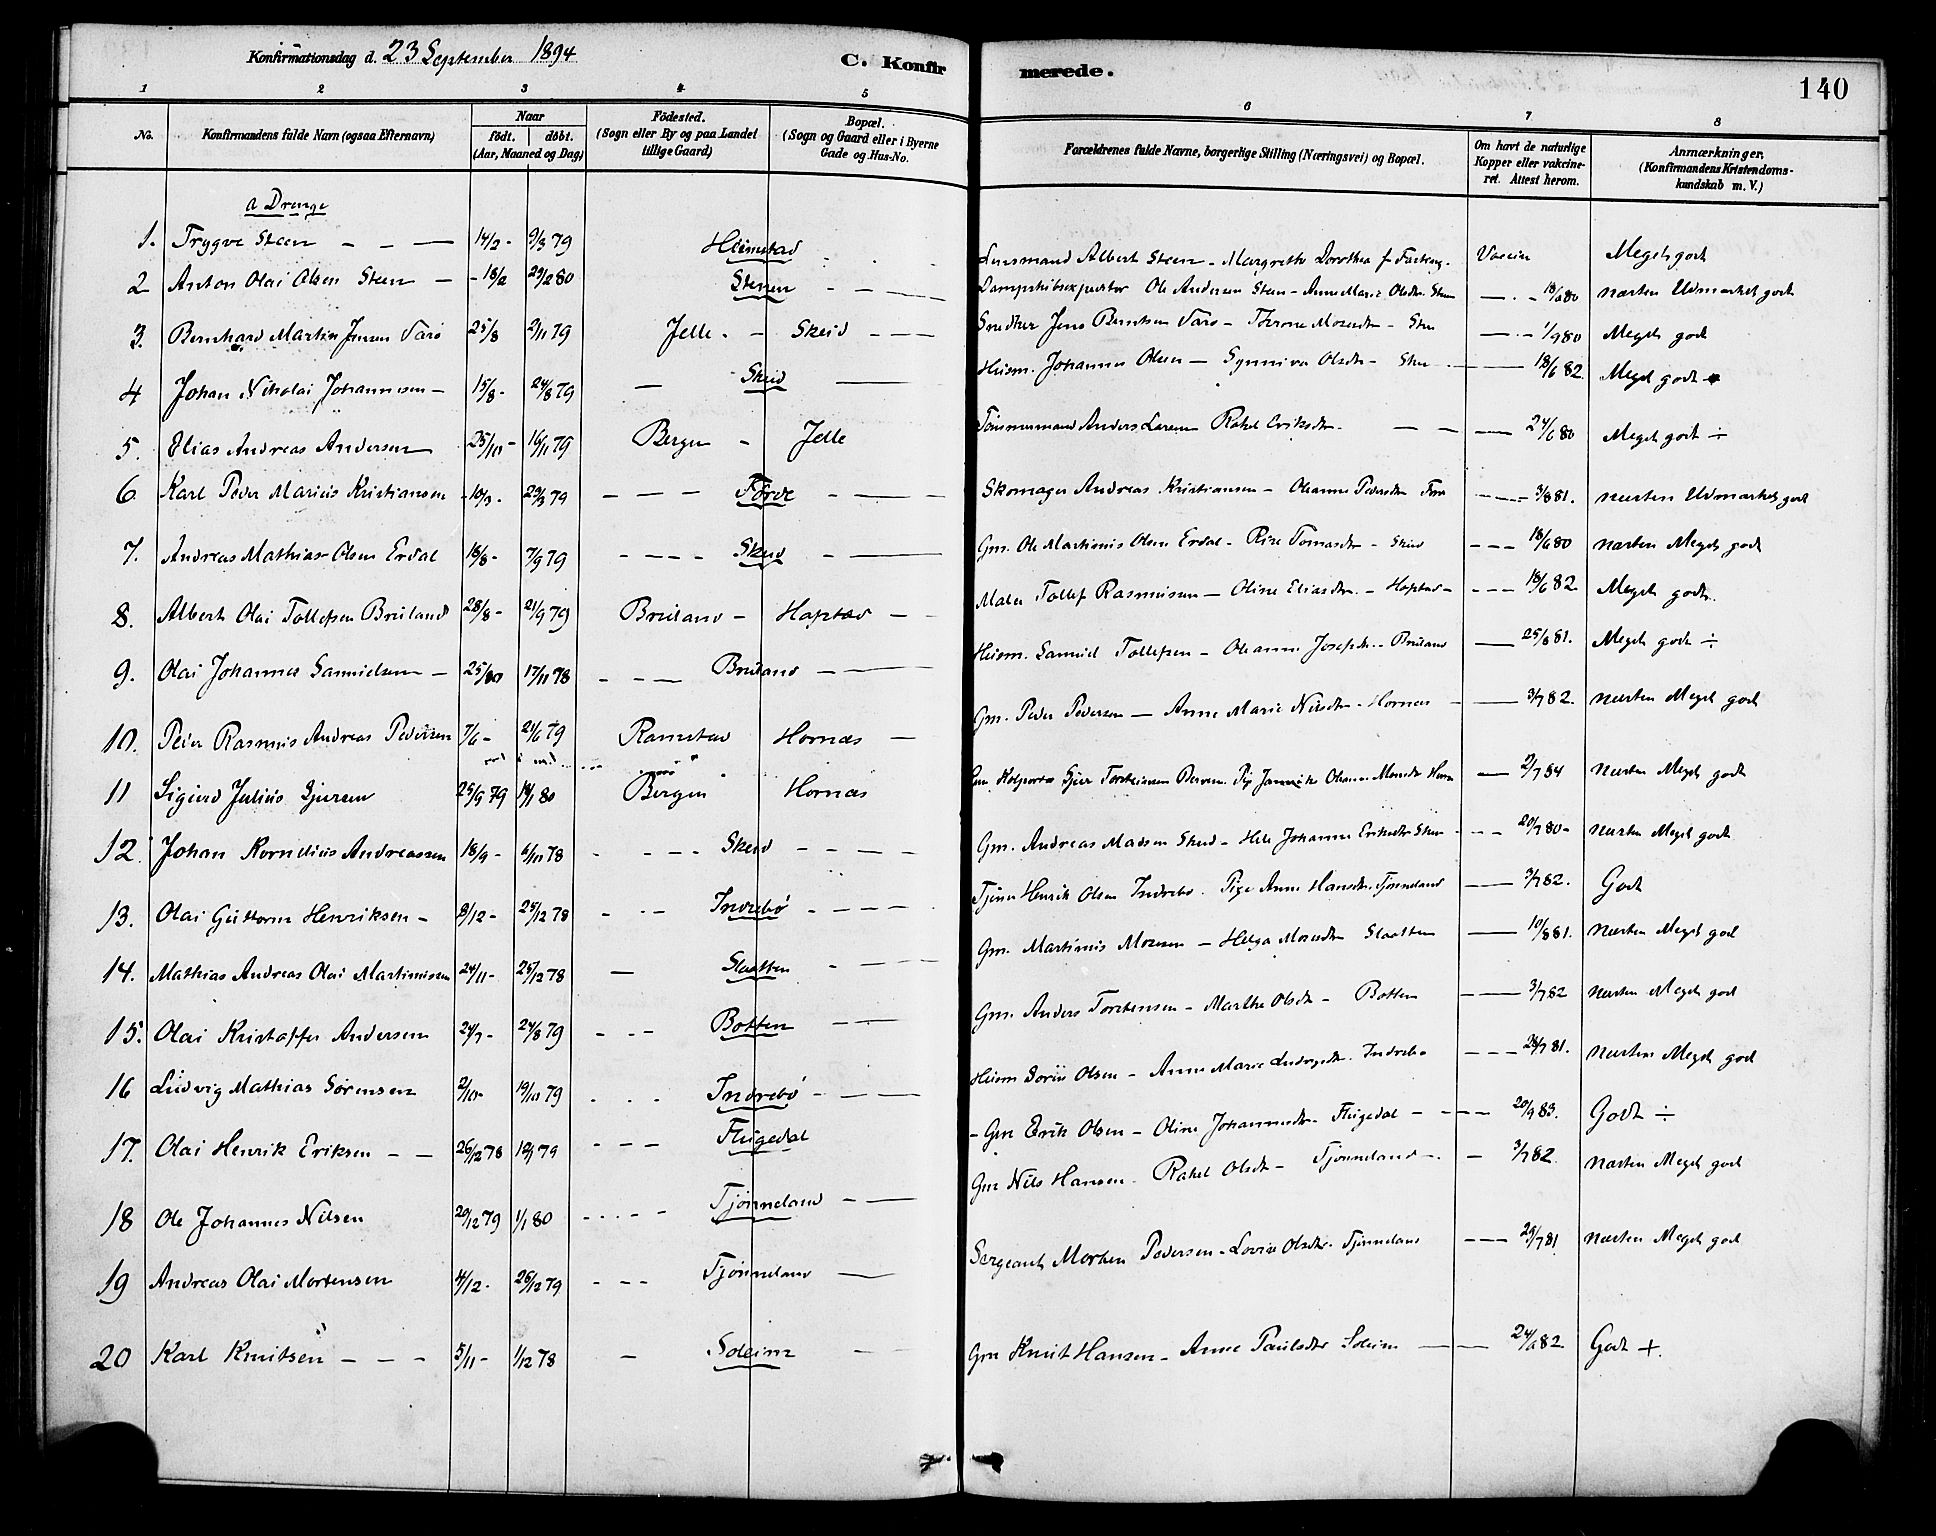 Konfirmationsdag d. 23 September 1894 C. Konfirmerede. 140
1 2 3 4 5 6 7 8
No. Konfirmandens fulde Navn (ogsaa Efternavn) Naar født. døbt. (Aar, Maaned og Dag) Fødested. (Sogn eller By og paa Landet tillige Gaard) Bopæl. (Sogn og Gaard eller i Byerne Gade og Hus-No. Forældrenes fulde Navne, borgerlige Stilling (Næringsvei) og Bopæl. Om havt de naturlige Kopper eller vakcineret. Attest herom. Anmærkninger, (Konfirmandens Kristendomskundskab m. V.)
a Drenge
1. Trygve Steen - - — 14/2 - 9/3 79 Heimstad Lensmand Albert Steen - Margrethe Dorothea f. Vaccin Meget godt
2 Anton Olai Olsen Steen — - 18/2 29/2 80 Stenen - - — Dampskibsexpeditør Ole Andersen Steen - Anne Marie Olsdtr. Steen — - 18/6 80 næsten Udmærket godt
3. Bernhard Martin Jensen Farsø 25/8 2/11 79 Jelle - Skeid - — Snedker Jens Berntsen - Mosesdtr - Sten — - 1/9 80 Meget godt
4 Johan Nikolai Johannesen - 15/8 - 24/8 79 — Skeid — Husm. Johannes Olsen — Synniva Olsdtr - Sten — 18/6 82. Meget godt
5. Elias Andreas Andersen 25/10 - 16/11 79 Bergen - Jelle Tømmermand Anders Larsen Rakel Eriksdtr. — — 24/6 80 Meget godt ÷
6. Karl Peder Marius Kristiansen 10/3 - 29/3 79 - — - Førde - — Skomager Andreas Kristiansen - Oleanne Pedersdtr Førde - - - 3/8 81. næsten Udmærket godt
7. Andreas Mathias Olsen Erdal 18/8 - 7/9 79 - - - - Skeid - — Gm. Ole Martinus Olsen Erdal - Tomasdtr - Skeid - - - 18/6 80 næsten Meget godt
8. Albert Olai Tollefsen Bruland 28/8 - 21/9 79 Bruland - Hapstad — Maler Tollef Rasmussen — Oline Eliasdtr. - Hapstad - - - - 18/6 82. Meget godt.
9. Olai Johannes Samuelsen — 25/10 17/11 78 - - — Bruland - — Husm. Samuel Tollefsen - Oleanne Josefsdtr. - Bruland — 25/8 81. Meget godt ÷
10. Peder Rasmus Andreas Pedersen 7/6 - 21/6 79 Ramstad Hornæs — Gm. Peder Pedersen — Anne Marie Nilsdtr. - Hornæs - — 3/7 82. næsten Meget godt
11 Sigurd Julius Gjersen 25/9 79 18/1 80 Bergen Hornæs Kolportør Gjert Torsteinsen Pige Olsen Hornæs — 2/7 84 næsten Meget godt
12. Johan Kornelius Andreassen 18/9 - 6/10 78 - - - - Skeid - - — Gm. Andreas Madsen Skeid - Johanne Eriksdtr Skeid - - - 20/7 80 - næsten Meget godt
13. Olai Guttorm Henriksen - 8/12 - 25/12 78 - - - Indrebø - - - Tjener Henrik Olsen Indrebø. Pige Anne Hansdtr. Tjønneland — 3/7 82. Godt
14. Mathias Andreas Olai Martinussen 24/11 - 25/12 78 — Slaatten - - — Gm. Martinus Mosesen — Helga Mosesdtr Slaatten — 10/8 81. næsten Meget god
15. Olai Kristoffer Andersen 24/7 - 24/8 79 - - - Botten - — Gm. Anders Torstensen - Marthe Olsdtr - Botten — 3/7 82 næsten Meget god
16 Ludvig Mathias Sørensen 2/10 - 19/10 79 - - - Indrebø - - — Husm Søren Olsen - Anne Marie Indrebø - - - 28/7 81. næsten Meget god
17. Olai Henrik Eriksen - - 26/12 78 12/1 79 - - - Flugedal - Gm Erik Olsen - Oline Johannesdtr. Flugedal - - - - 20/9 83. Godt ÷
18 Ole Johannes Nilsen 20/12 79 1/1 80 - - - - - Tjønneland - — Gm Nils Hansen. Rakel Olsdtr - Tjønneland - - 3/7 82. næsten Meget god
19 Andreas Olai Mortensen 4/12 - 26/12 79 - - - Tjønneland — Sergeant Morten Pedersen - Lovise Olsdtr. Tjønneland - - - 29/7 81 næsten Meget god
20 Karl Knutsen - - - 5/11 - 1/12 78 — Soleim — Gm Knut Hansen - Anne Paulsdtr Soleim — 24/6 82 Godt +.